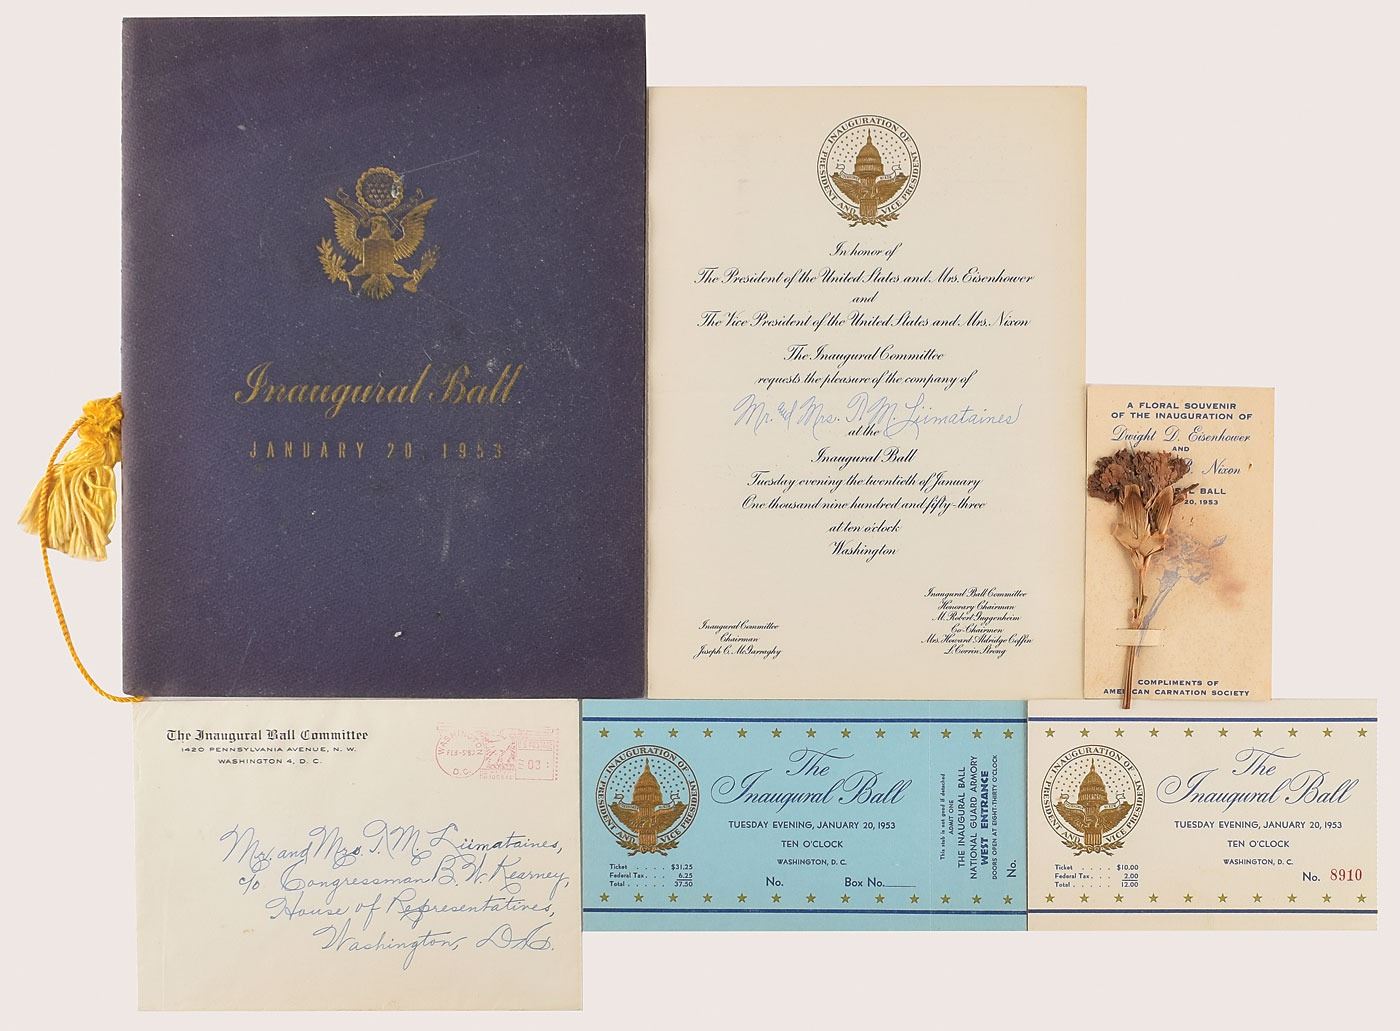 Inaugural Ball
JANUARY 20, 1953
INAUGURATION OF
PRESIDENT AND VICE PRESIDENT
In honor of
The President of the United States and Mrs. Eisenhower
and
The Vice President of the United States and Mrs. Nixon
The Inaugural Committee
requests the pleasure of the company of
Mr. and Mrs. T. M. Liimataines
at the
Inaugural Ball
Tuesday evening the twentieth of January
One thousand nine hundred and fifty-three
at ten o'clock
Washington
Inaugural Committee
Chairman
Joseph C. McGarraghy
Inaugural Ball Committee
Honorary Chairman
M. Robert Guggenheim
Co-Chairmen
Mrs. Howard Aldridge Coffin
L. Corrin Strong
A FLORAL SOUVENIR
OF THE INAUGURATION OF
Dwight D. Eisenhower
AND
Nixon
BALL
20, 1953
COMPLIMENTS OF
AMERICAN CARNATION SOCIETY
The Inaugural Ball Committee
1420 PENNSYLVANIA AVENUE, N. W.
WASHINGTON 4, D. C.
WASHINGTON
FEB-5'53
D.C.
03
Mr. and Mrs. T. M. Liimataines,
c/o Congressman B. W. Kearney,
House of Representatives,
Washington, D.C.
INAUGURATION OF
PRESIDENT AND VICE PRESIDENT
The
Inaugural Ball
TUESDAY EVENING, JANUARY 20, 1953
TEN O'CLOCK
WASHINGTON, D. C.
Ticket . . . . . $31.25
Federal Tax . . . 6.25
Total . . . . . 37.50
No.
Box No.
This stub is not good if detached
ADMIT ONE
THE INAUGURAL BALL
NATIONAL GUARD ARMORY
WEST ENTRANCE
DOORS OPEN AT EIGHT-THIRTY O'CLOCK
No.
INAUGURATION OF
PRESIDENT AND VICE PRESIDENT
The
Inaugural Ball
TUESDAY EVENING, JANUARY 20, 1953
TEN O'CLOCK
WASHINGTON, D. C.
Ticket . . . . . $10.00
Federal Tax . . . 2.00
Total . . . . . 12.00
No. 8910